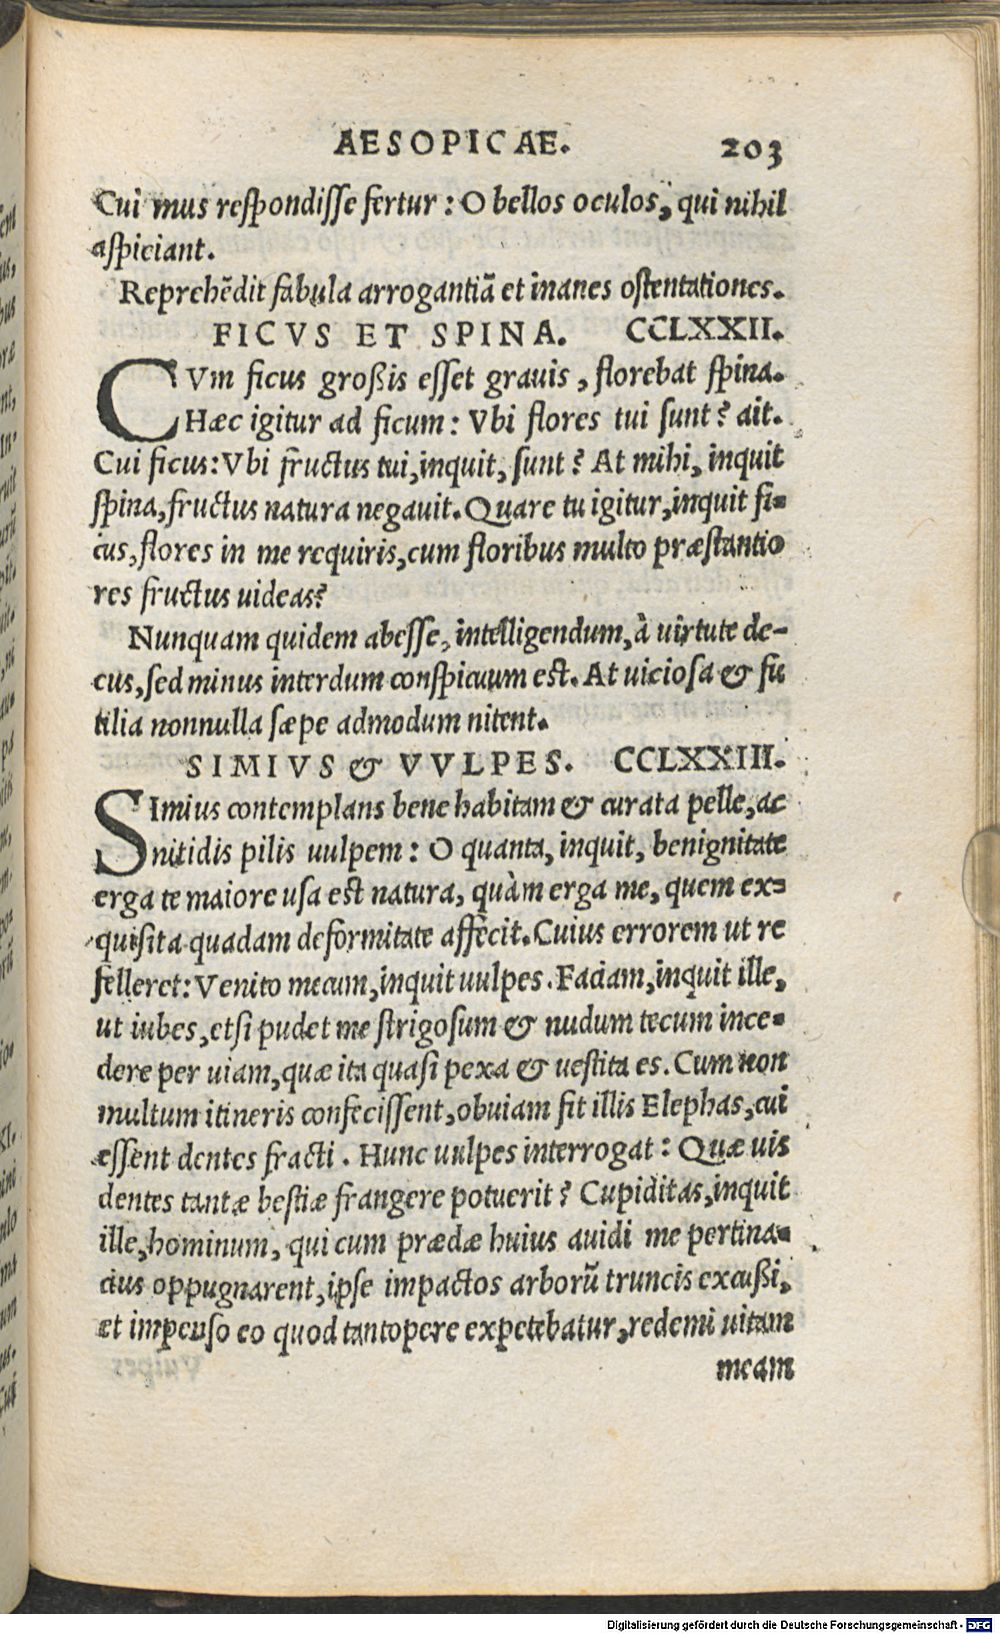 AESOPICAE. 203
Cui mus respondisse fertur: O bellos oculos, qui nihil
aspiciant.
Reprehēdit fabula arrogantiā et inanes ostentationes.
FICVS ET SPINA. CCLXXII.
CVm ficus großis esset grauis, florebat spina.
Hæc igitur ad ficum: Vbi flores tui sunt? ait.
Cui ficus: Vbi fructus tui, inquit, sunt? At mihi, inquit
spina, fructus natura negauit. Quare tu igitur, inquit fi=
cus, flores in me requiris, cum floribus multo præstantio
res fructus uideas?
Nunquam quidem abesse, intelligendum, à uirtute de-
cus, sed minus interdum conspicuum est. At viciosa & fu
tilia nonnulla sæpe admodum nitent.
SIMIVS & VVLPES. CCLXXIII.
SImius contemplans bene habitam & curata pelle, ac
nitidis pilis uulpem: O quanta, inquit, benignitate
erga te maiore usa est natura, quàm erga me, quem ex=
quisita quadam deformitate affecit. Cuius errorem ut re
felleret: Venito mecum, inquit uulpes. Faciam, inquit ille,
ut iubes, etsi pudet me strigosum & nudum tecum ince=
dere per uiam, quæ ita quasi pexa & uestita es. Cum non
multum itineris confecissent, obuiam fit illis Elephas, cui
essent dentes fracti. Hunc uulpes interrogat: Quæ uis
dentes tantæ bestiæ frangere potuerit? Cupiditas, inquit
ille, hominum, qui cum prædæ huius auidi me pertina=
cius oppugnarent, ipse impactos arborū truncis excußi,
et impenso eo quod tantopere expetebatur, redemi uitam
meam
Digitalisierung gefördert durch die Deutsche Forschungsgemeinschaft - DFG